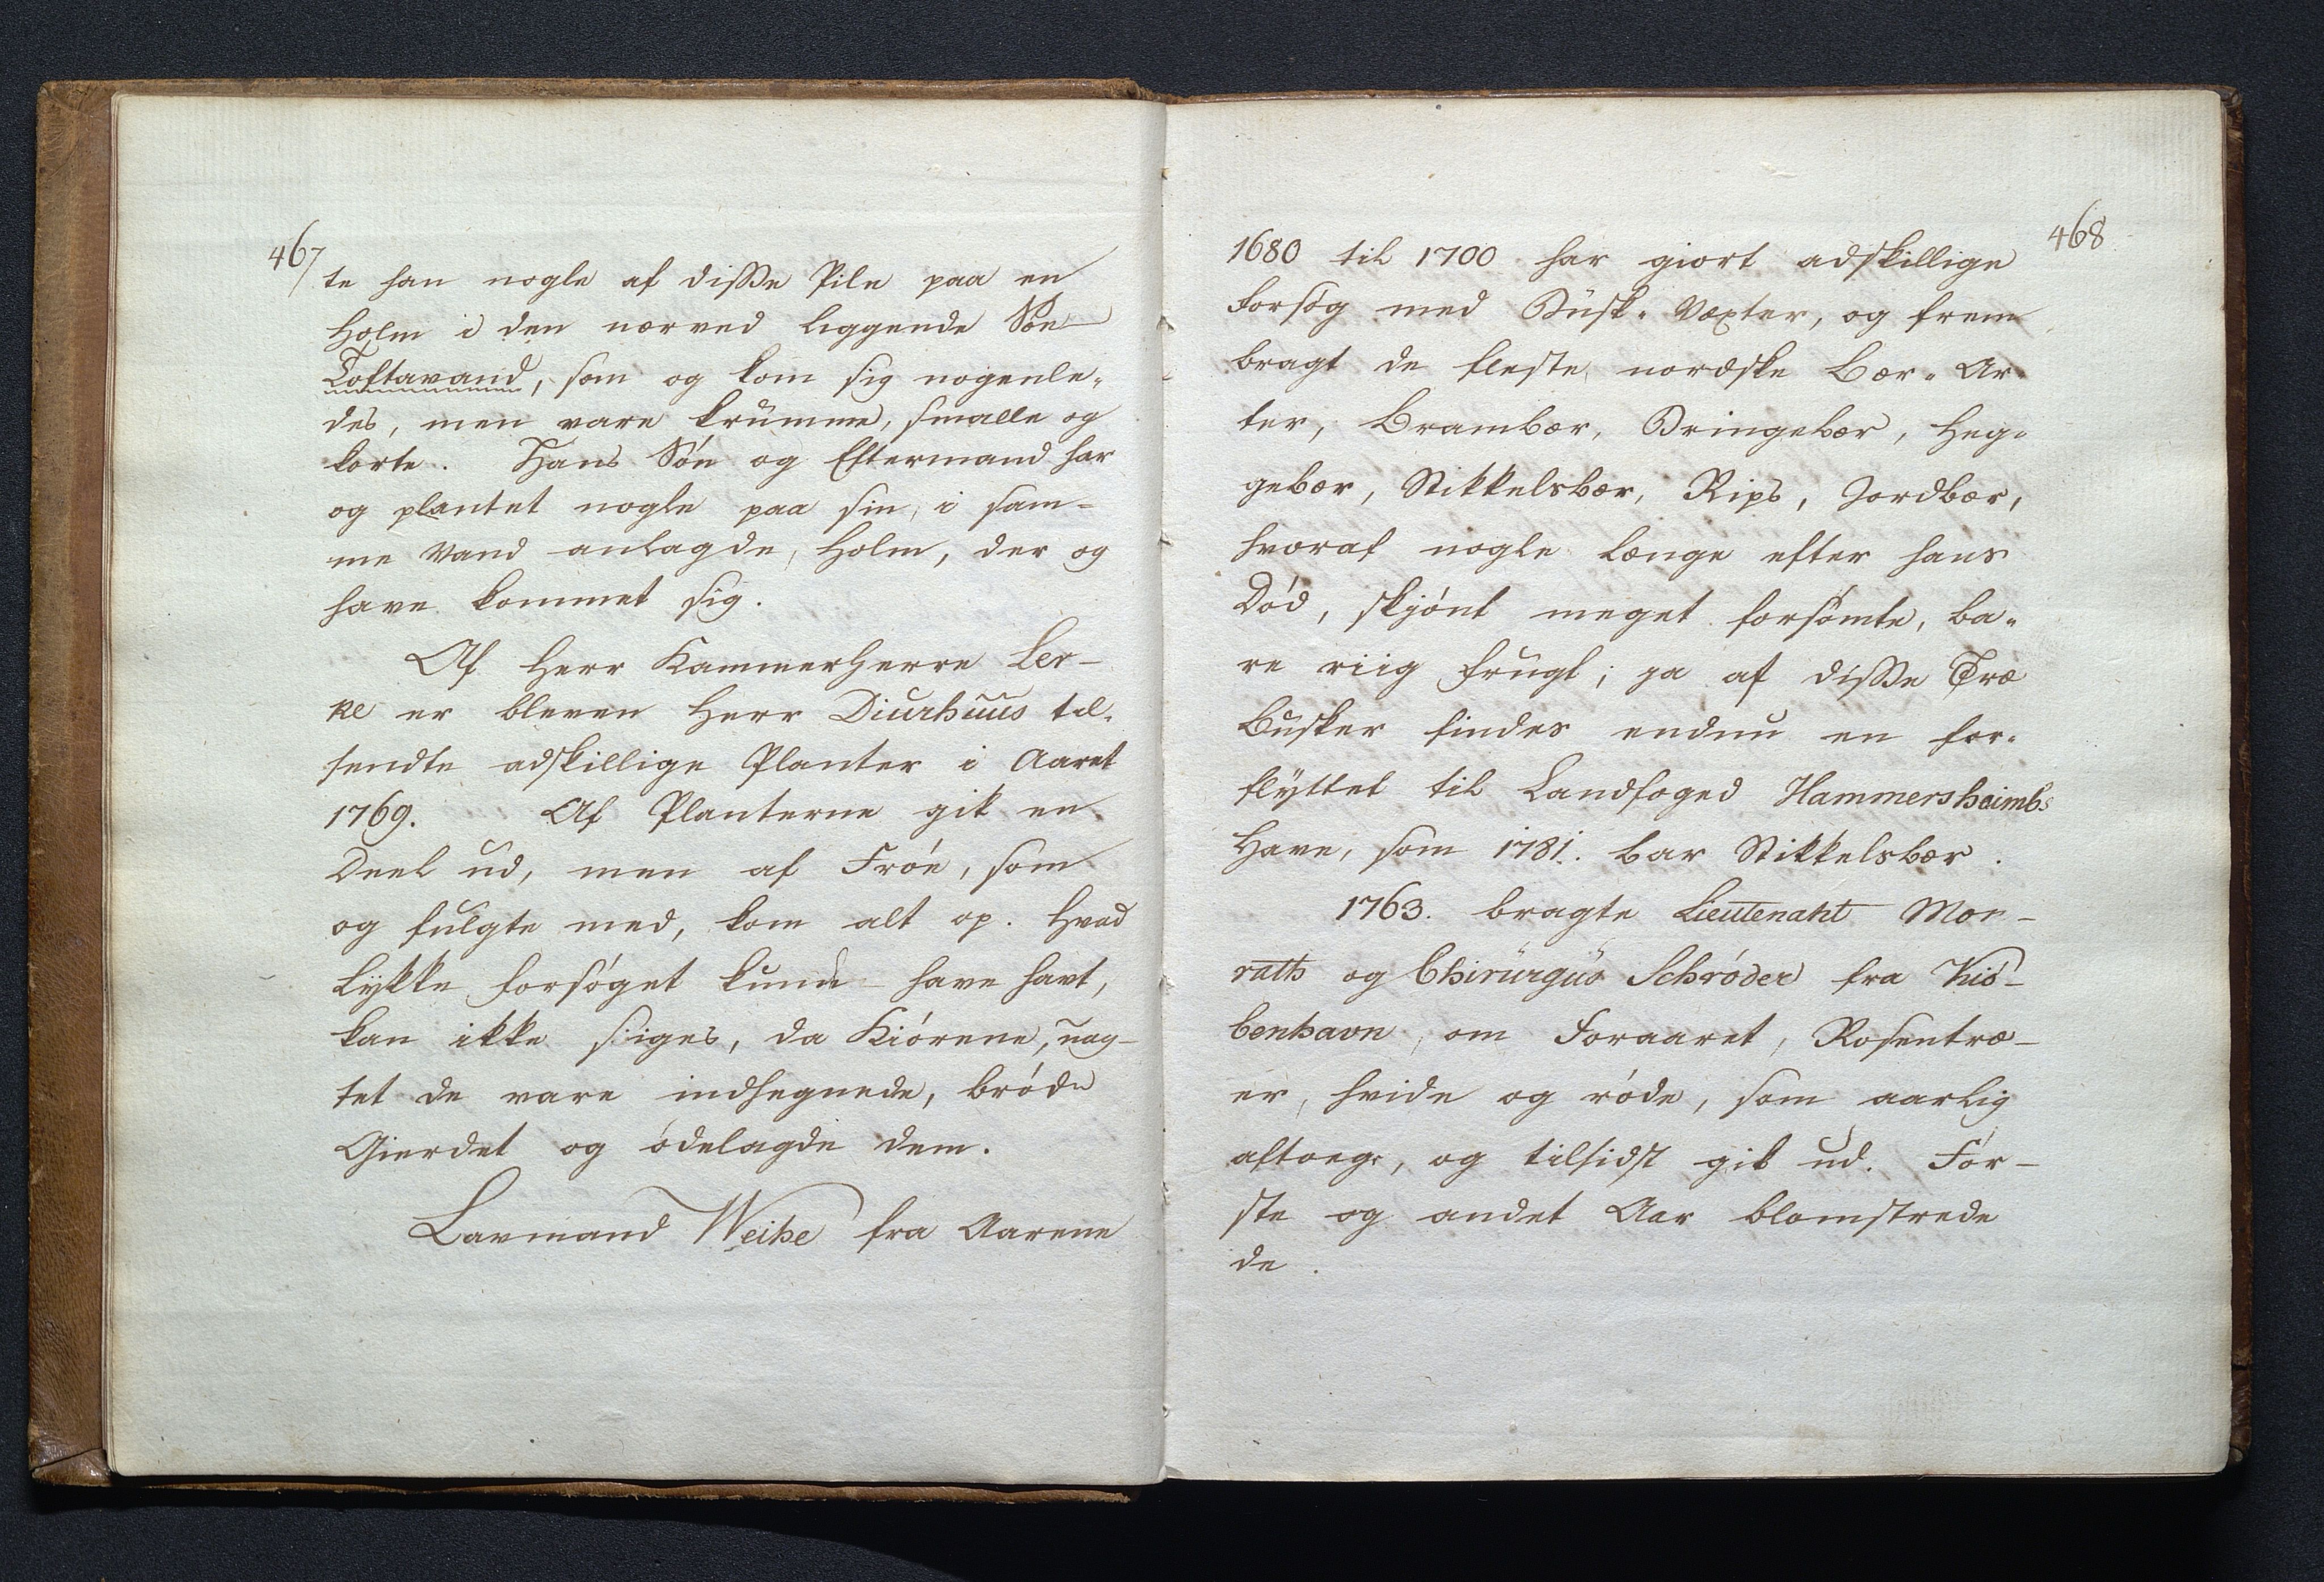 467
te han nogle af disse Pile paa en
Holm i den nærved liggende Søe
Toftavand, som og kom sig nogenle-
des, men vare krumme, smalle og
korte. Hans Søn og Eftermand har
og plantet nogle paa sin, i sam-
me Vand anlagde, Holm, der og
have kommet sig.
Af Herr Kammerherre Ler-
ke er bleven Herr Diurhuus til-
sendte adskillige Planter i Aaret
1769. Af Planterne gik en
Deel ud, men af Frøe, som
og fulgte med, kom alt op. Hvad
Lykke Forsøget kunde have havt,
kan ikke siiges, da Kiørene, uag-
tet de vare indhegnede, brøde
Gierdet og ødelagde dem.
Lavmand Weihe fra Aarene
468
1680 til 1700 har giort adskillige
Forsøg med Busk-Væxter, og frem
bragt de fleste nordske Bær-Ar-
ter, Brambær, Bringebær, Heg-
gebær, Stikkelsbær, Rips, Jordbær,
hvoraf nogle længe efter hans
Død, skjønt meget forsømte, ba-
re riig Frugt; ja af disse Træ
Busker findes endnu en for-
flyttet til Landfoged Hammershaimbs
Have, som 1781. bar Stikkelsbær.
1763. bragte Lieutenant Mon-
rath og Chirurgus Schrøder fra Kiø-
benhavn, om Foraaret, Rosentræ-
er, hvide og røde, som aarlig
aftoge, og tilsidst gik ud. Før-
ste og andet Aar blomstrede
de.